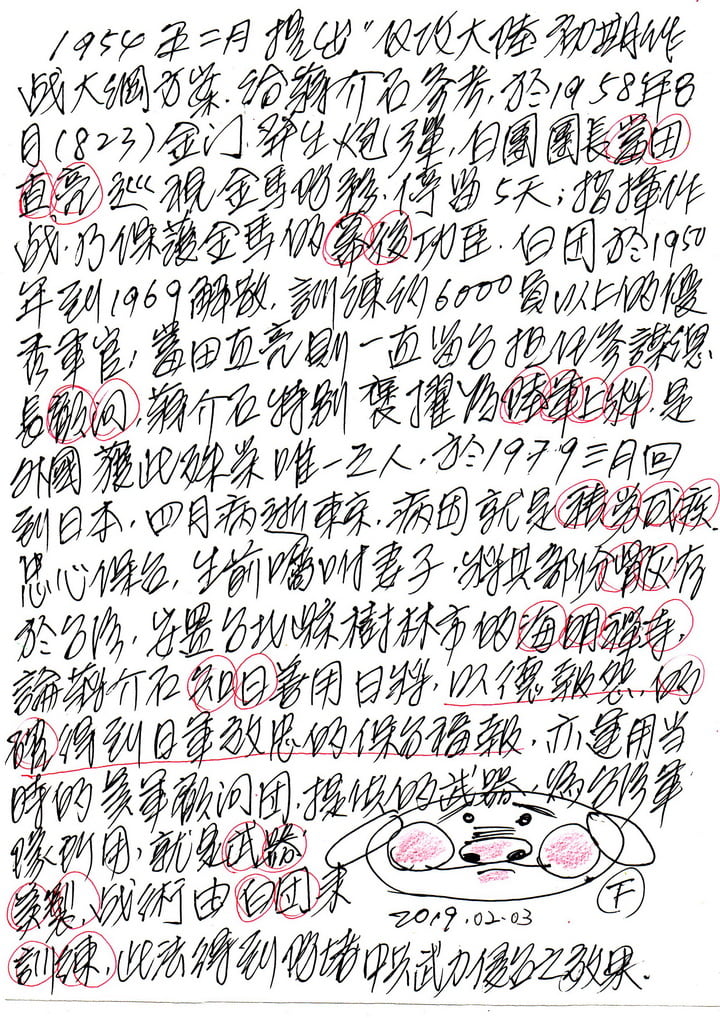 1954年二月提出"反攻大陸初期作
战大綱方案.给蔣介石參考,於1958年8
日(823)金门.발生炮彈,白團團長富田
直亮巡視金馬防務.停留5天;指揮作
战.乃保護金馬的幕後功臣.白团於1950
年到1969解散.訓練約6000員以上的優
秀軍官;富田直亮則一直留台担任參謀總
長顧问,蔣介石特别褒擢為陸軍上將.是
外國獲此殊荣唯一之人.於1979三月回
到日本,四月病逝東京,病因就是積勞成疾.
忠心保台,生前囑咐妻子,將其部份骨灰存
於台湾,安置台北縣樹林市的海明禪寺,
論蔣介石知日善用日將,以德報怨,的
確得到日軍效忠的保台福報,亦運用当
時的美軍顧问团,提供的武器,為台湾軍
隊所用,就是武器
美製,战術由白团来
訓練,此法得到防堵中共武力侵台之效果.
下
2019.02.03